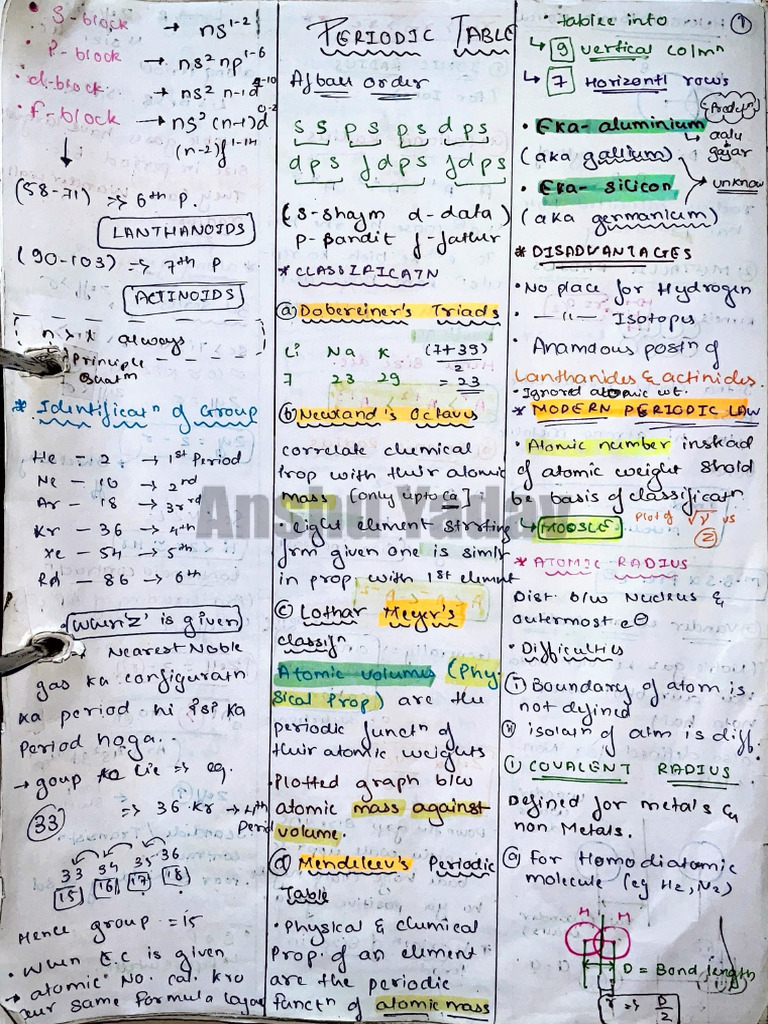 • S-block → ns1-2
• P-block → ns2 np1-6
• d-block → ns2 n-1d
• f-block → ns2 (n-1)d
(n-2)f1-14
(58-71) => 6th P.
LANTHANOIDS
(90-103) => 7th P
ACTINOIDS
always
Principle
* Identificatn of Group
He – 2 → 1st Period
Ne – 10 → 2nd
Ar – 18 → 3rd
Kr – 36 → 4th
Xe – 54 → 5th
Rd – 86 → 6th
• When 'z' is given
→ Nearest Noble
gas ka configuratn
ka period hi isi ka
Period hoga..
→ goup ke lie => eg.
33 => 36 Kr → 4th
Period
33 34 35 36
15 16 17 18
Hence group = 15
• When E.C is given
→ atomic No. cal. kro
aur same formula lagao
PERIODIC TABLE
Afbau Order
s s p s p s d p s
d p s f d p s f d p s
(s-shaym d-data)
P-Bandit f-fattur
* CLASSIFICATN
(a) Dobereiner's Triads
Li Na K (7+39)
2
7 23 29 = 23
(b) Newland's Octavs
correlate chemical
prop with their atomic
mass [only upto Ca] i
eight element strting
frm given one is simlr
in prop. with 1st elemnt
(c) Lothar Meyer's
classifn
Atomic volumes (Phy
sical Prop) are the
periodic functn of
their atomic weights
• Plotted graph b/w
atomic mass against
volume.
(d) Mendeleev's Periodic
Table
• Physical & chemical
Prop. of an element
are the periodic
functn of atomic mass
1
• tablee into
↳ 9 vertical colmn
↳ 7 Horizontl rows
• Eka-aluminium
↳ aalu
gajar
(aka gallium)
unknow
• Eka-silicon
(aka germanium)
* DISADVANTAGES
• No place for Hydrogen
• –11– Isotopes
• Anamaous positn of
Lanthanides & actinides.
• Ignored atomic wt.
* MODERN PERIODIC LAW
• Atomic number instead
of atomic weight shold
be basis of classificatn
↳ MOOSLE Plot of √ν vs
Z
* ATOMIC RADIUS
Dist. b/w Nucleus &
outermost e⊖
• Difficulties
(i) Boundary of atom is
not defined
(ii) isolatn of atm is diff.
(1) COVALENT RADIUS
Defined for metals &
non Metals.
(a) For Homodiatomic
molecule (eg H2, N2)
H H
D = Bond length
r => D/2
Anshu Yadav